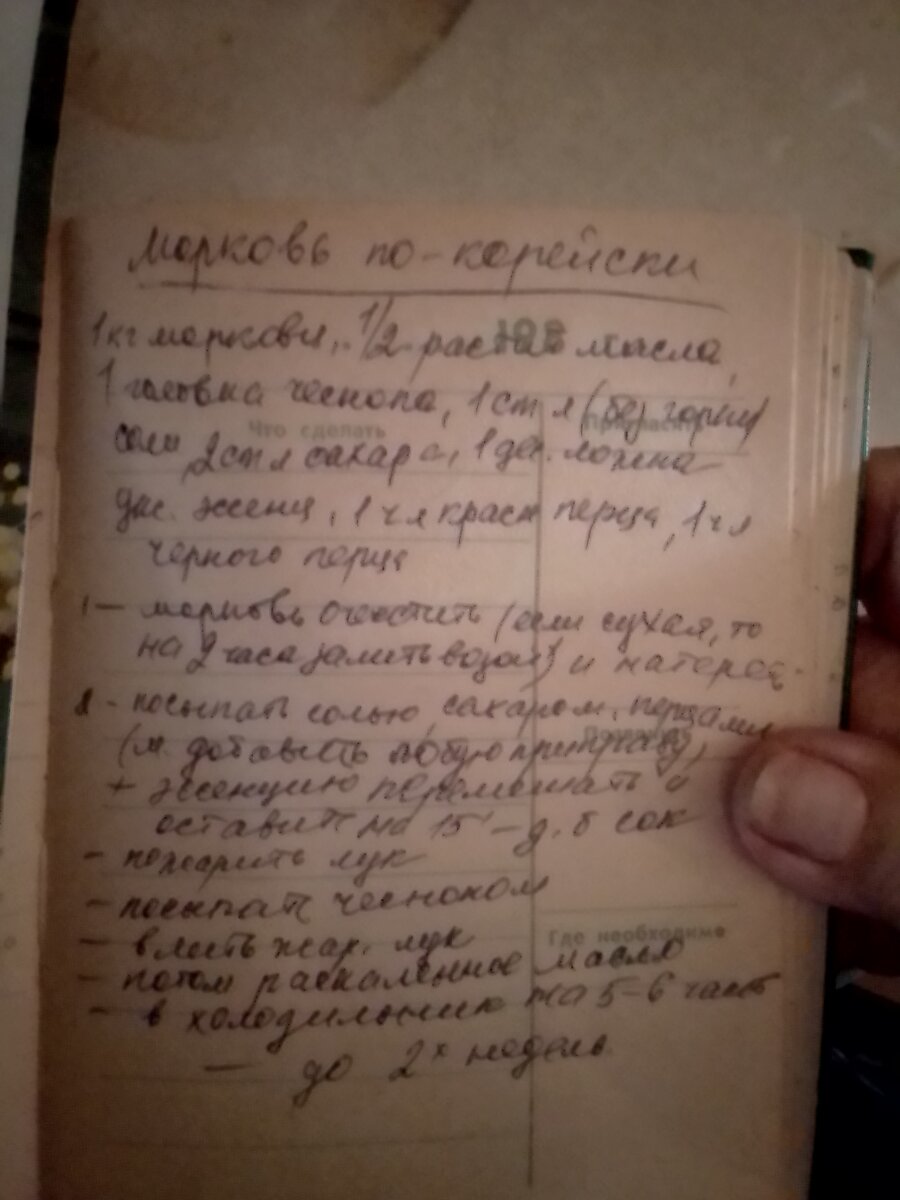 Морковь по-корейски
1 кг моркови, 1/2 раст масла,
1 головка чеснока, 1 ст л (без горки)
Что сделать
соли, 2 ст л сахара, 1 дес. ложка
укс. эссенц, 1 ч л красн перца, 1 ч л
черного перца
1 - морковь очистить (если сухая, то
на 2 часа залить водой) и натереть
2 - посыпать солью сахаром, перцами
(м. добавить любую приправу)
+ эссенцию перемешать и
оставить на 15' - д. б сок
- пожарить лук
- посыпать чесноком
- влить жар. лук
Где необходимо
- потом раскаленное масло
- в холодильник на 5-6 часов
- до 2х недель